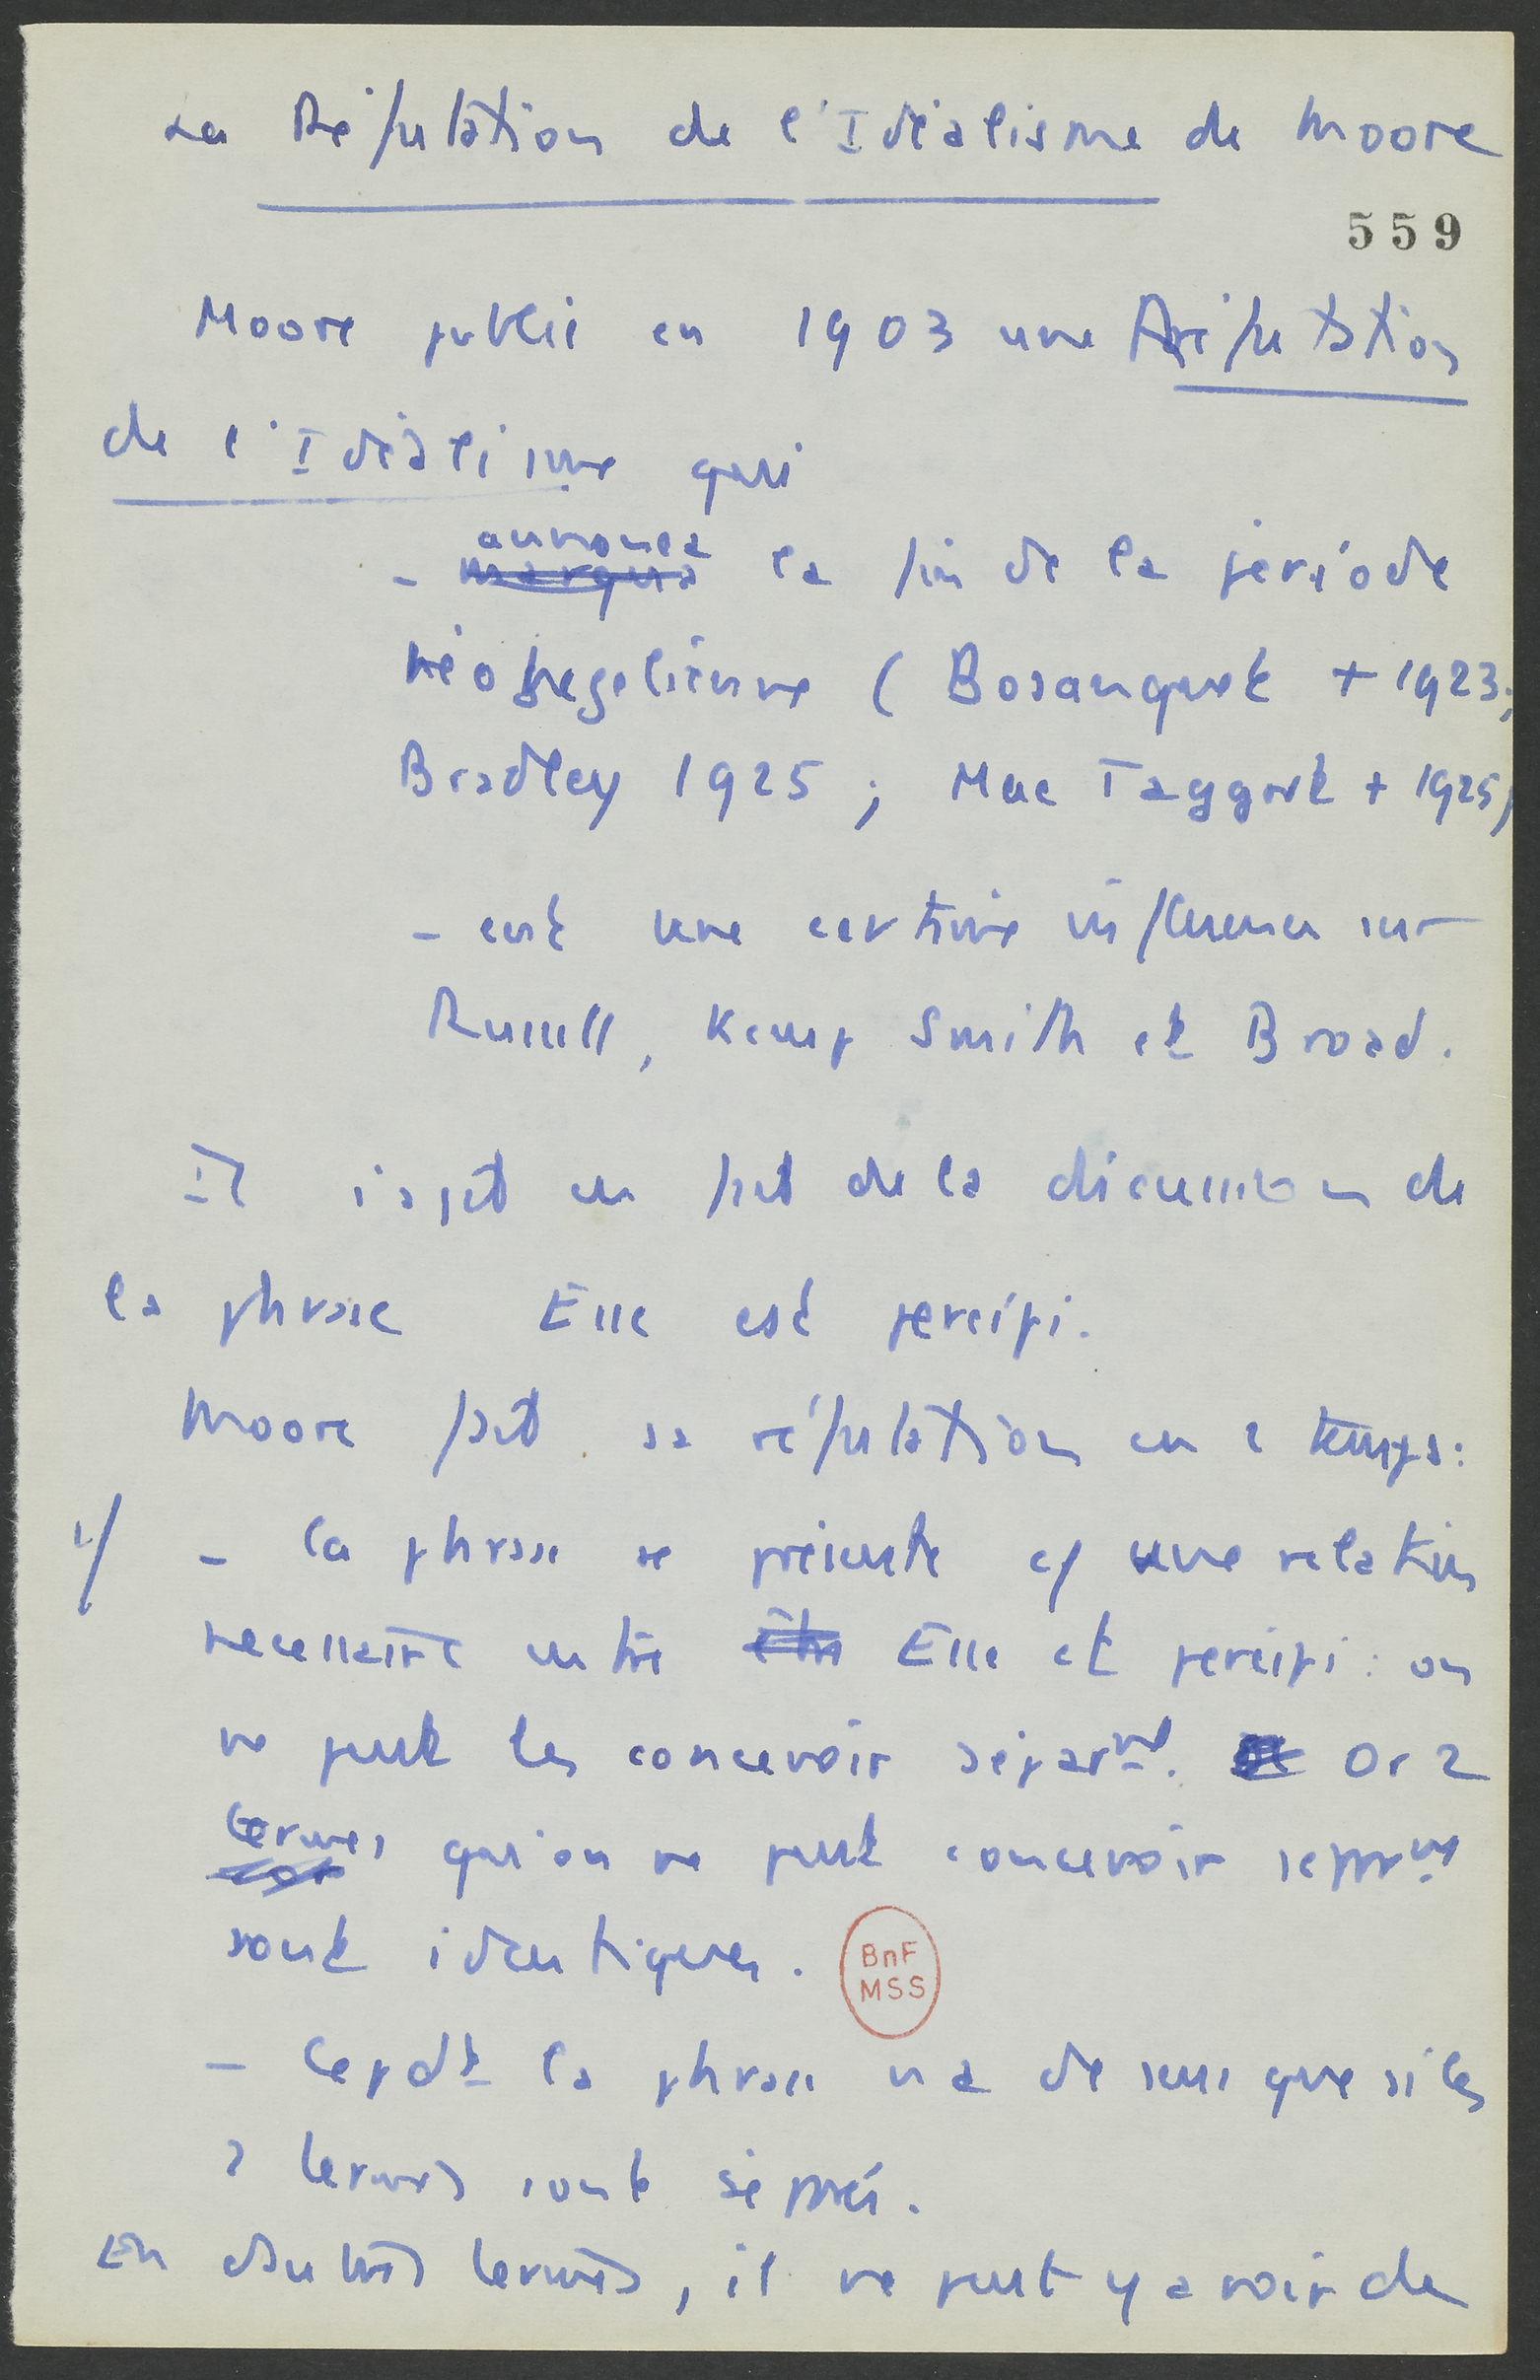 La Réfutation de l'Idéalisme de Moore
559
Moore publie en 1903 une Réfutation
de l'Idéalisme qui
annonça
- marqua la fin de la période
néohegelienne (Bosanquet + 1923;
Bradley 1925 ; Mac Taggart + 1925)
- eut une certaine influence sur
Russell, Kemp Smith et Broad.
Il s'agit en fait de la discussion de
la phrase Esse est percipi.
Moore fait sa réfutation en 2 temps:
1/ - la phrase se présente c/ une relation
necessaire entre être Esse et percipi : on
ne peut les concevoir séparmt. Or 2
termes qu'on ne peut concevoir sepmt
sont identiques.
BnF
MSS
- Cepdt la phrase n'a de sens que si les
2 termes sont séparés.
En d'autres termes, il ne peut y avoir de